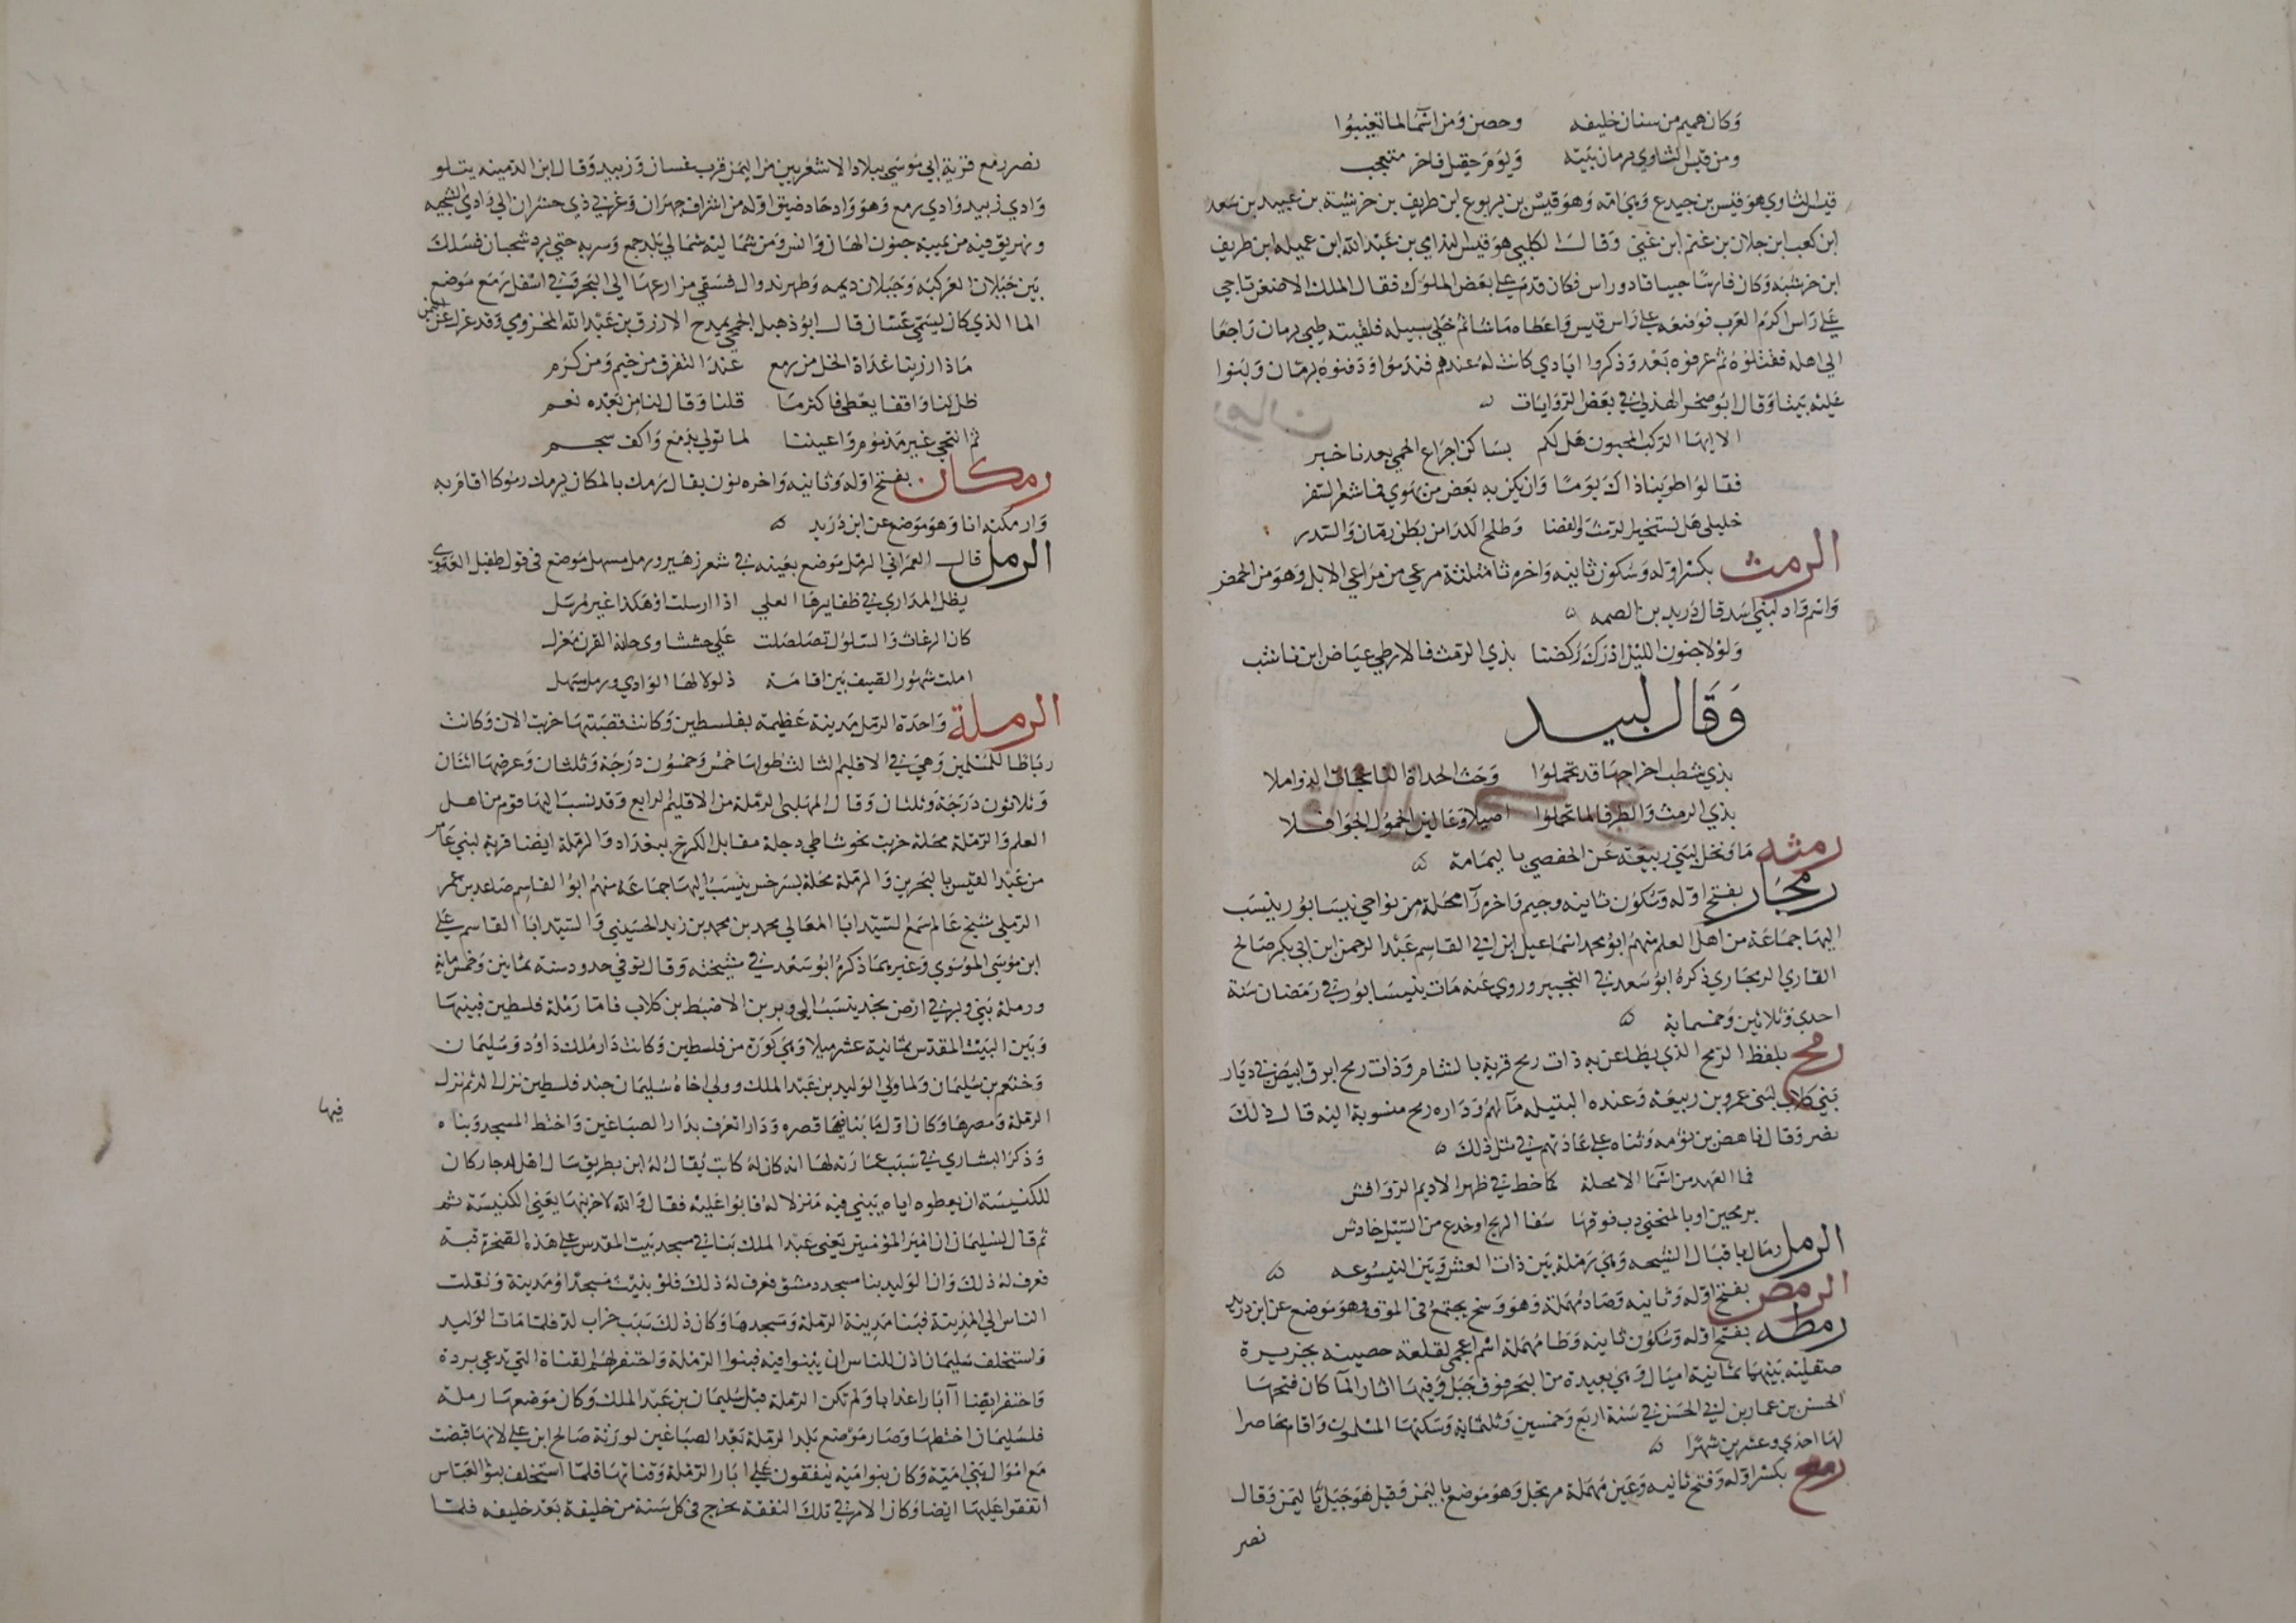 وكان هميم من سنان خليفه وحصن ومن اسما لما تغيبوا
ومن قيس الثاوي برمان بيته ويوم حقيل فاخر متعجب
قيس الثاوي هو قيس بن جيدع وهي امه وهو قيس بن يربوع ابن طريف بن خرشبة بن عبيد بن سعد
ابن كعب ابن جلان بن غنم ابن غني وقال الكلبي هو قيس الندامي بن عبد الله ابن عميله ابن طريف
ابن خرشبه وكان فارسا جيبا قاد وراس فكان قدم علي بعض الملوك فقال الملك لاضعن تاجي
علي راس اكرم العرب فوضعه علي راس قيس واعطاه ماشا ثم خلي سبيله فلقيته طيي برمان راجعا
الي اهله فقتلوه ثم عرفوه بعد وذكروا ايادي كانت له عندهم فندموا ودفنوه برمان وبنوا
عليه بيتا وقال ابو صخر الهذلي في بعض الروايات
الا ايها الركب المخبون هل لكم بساكن اجراع الحمي بعدنا خبر
فقالوا طوينا ذاك يوما وان يكن به بعض من تهوي فما شعر السفر
خليلي هل يستخبر الرمث والغضا وطلح الكدا من بطن رمان والسدر
الرمث بكسر اوله وسكون ثانيه واخره ثا مثلثة مرعي من مراعي الابل وهو من الحمض
واسم واد لبني اسد قال دريد بن الصمه
ولولا جنون الليل ادرك ركضنا بذي الرمث فالارطي عياض ابن ناشب
وقال لبيد
بذي شطب احداجها قد تحملوا وحث الحداة الناعجات الذواملا
بذي الرمث والطرفا لما تحملوا اصيلا وعالين الحمول الجوافلا
رمثه ما ونخل لبني ربيعة عن الحفصي باليمامة
رمجار بفتح اوله وسكون ثانيه وجيم واخره را محلة من نواحي نيسابور ينسب
اليها جماعة من اهل العلم منهم ابو محمد اسماعيل ابن ابي القاسم عبد الرحمن ابن ابي بكر صالح
القاري الرمجاري ذكره ابو سعد في التحبير وروي عنه مات بنيسابور في رمضان سنة
احدي وثلاثين وخمسماية
رمح بلفظ الرمح الذي يطاعن به ذات رمح قرية بالشام وذات رمح ابرق ابيض في ديار
بني كلاب لبني عمرو بن ربيعة وعنده البتيله ما لهم ودارة رمح منسوبة اليه قال ذلك
نصر وقال ناهض بن ثومه وثناه علي عادتهم في مثل ذلك
فما العهد من اسما الا محلة كما خط في ظهر الاديم الرواقش
برمحين او بالمنحني دب فوقها سفا الريح او خدع من السيل خادش
الرمل رمال باقبال الشيحه وهي رملة بين ذات العشر وبين الينسوعه
الرمص بفتح اوله وثانيه وصاد مهملة وهو وسخ يجتمع في الموق وهو موضع عن ابن دريد
رمطه بفتح اوله وسكون ثانيه وطا مهملة اسم اعجمي لقلعة حصينه بجزيرة
صقليه بينها ثمانية اميال وهي بعيدة من البحر فوق جبل وفيها اثار الما كان فتحها
الحسن بن عمار بن ابي الحسن في سنة اربع وخمسين وثلثماية وسكنها المسلمون واقام محاصرا
لها احدي وعشرين شهرا
رمع بكسر اوله وفتح ثانيه وعين مهملة مرتجل وهو موضع باليمن وقيل هو جبل باليمن وقال
نصر
نصر رمع قرية ابي موسي ببلاد الاشعريين من اليمن قرب غسان وزبيد وقال ابن الدمينه يتلو
وادي زبيد وادي رمع وهو واد حاد ضيق اوله من اشراف جهران وغربي ذي خشران الي وادي الشجبه
ويهريق فيه من يمينه جنوب الهان وانس ومن شماليه شمالي بلد جمع وسربه حتي يرد شجبان فسلك
بين جبلان العركبه وجبلان ديمه وظهر ندوال فسقي مزارعها الي البحر قسن في اسفل رمع موضع
الما الذي كان يسمي غسان قال ابو ذهبل الجمحي يمدح الازرق بن عبد الله المخزومي وقد عزل عن اليمن
ماذا رزينا غداة الخل من رمع عند التفرق من خيم ومن كرم
ظل لنا واقفا يعطي فاكثر ما قلنا وقال لنا من بعده نعم
ثم انتحي غير مذموم واعيننا لما تولي بدمع واكف سجم
رمكان بفتح اوله وثانيه واخره نون يقال رمك بالمكان يرمك رموكا اقام به
وارمكته انا وهو موضع عن ابن دريد
الرمل قال العمراني الرمل موضع بعينه في شعر زهير ورمل مسهل موضع في قول طفيل الغنوي
يظل المداري في ظفايرها العلي اذا ارسلت او هكذا غير مرسل
كان الرغاث والسلوس تصلصلت علي خششاوي جابة القرن مغزل
املت شهور الصيف بين اقامة ذلولا لها الوادي ورمل مسهل
الرملة واحدة الرمل مدينة عظيمة بفلسطين وكانت قصبتها خربت الان وكانت
رباطا للمسلمين وهي في الاقليم الثالث طولها خمس وخمسون درجة وثلثان وعرضها اثنان
وثلاثون درجة وثلثان وقال المهلبي الرملة من الاقليم الرابع وقد نسب اليها قوم من اهل
العلم والرملة محلة خربت نحو شاطي دجلة مقابل الكرخ ببغداد والرملة ايضا قرية لبني عامر
من عبد القيس بالبحرين والرملة محلة بسرخس ينسب اليها جماعة منهم ابو القاسم صاعد بن عمر
الرملي شيخ عالم سمع السيد ابا المعالي محمد بن محمد بن زيد الحسيني والسيد ابا القاسم علي
ابن موسي الموسوي وغيرهما ذكره ابو سعد في مشيخته وقال توفي في حدود سنة ثمانين وخمس ماية
ورملة بني وبر في ارض نجد ينسب الي وبر بن الاضبط بن كلاب فاما رملة فلسطين فبينها
وبين البيت المقدس ثمانية عشر ميلا وهي كورة من فلسطين وكانت دار ملك داود وسليمان
ورحبعم بن سليمان ولما ولي الوليد بن عبد الملك وولي اخاه سليمان جند فلسطين نزل لد ثم نزل
الرملة ومصرها وكان اول ما بنا فيها قصره ودارا تعرف بدار الصباغين واختط المسجد وبناه
وذكر البشاري في سبب عمارته لها انه كان له كاتب يقال له ابن بطريق سال اهل لد جارا كان
للكنيسة ان يعطوه اياه يبني فيه منزلا له فابوا عليه فقال والله لاخربنها يعني الكنيسة ثم
ثم قال لسليمان ان امير المومنين يعني عبد الملك بنا في مسجد بيت المقدس علي هذه الصخرة قبة
فعرف له ذلك وان الوليد بنا مسجد دمشق فعرف له ذلك فلو بنيت مسجدا ومدينة ونقلت
الناس الي المدينة فبنا مدينة الرملة ومسجدها وكان ذلك سبب خراب لد فلما مات الوليد
واستخلف سليمان اذن للناس ان يبنوا فيه فبنوا الرملة واحتفر لهم القناة التي تدعي بردة
واحتفر ايضا آبارا عذابا ولم تكن الرملة قبل سليمان بن عبد الملك وكان موضعها رملة
فلسليمان اختطها وصار موضع بلد الرملة بعد الصباغين لورثة صالح ابن علي لانها قبضت
مع اموال بني امية وكان بنو امية ينفقون علي ابار الرملة وقناتها فلما استخلف بنو العباس
انفقوا عليها ايضا وكان الامر في تلك النفقة يخرج في كل سنة من خليفة بعد خليفه فلما
فيها